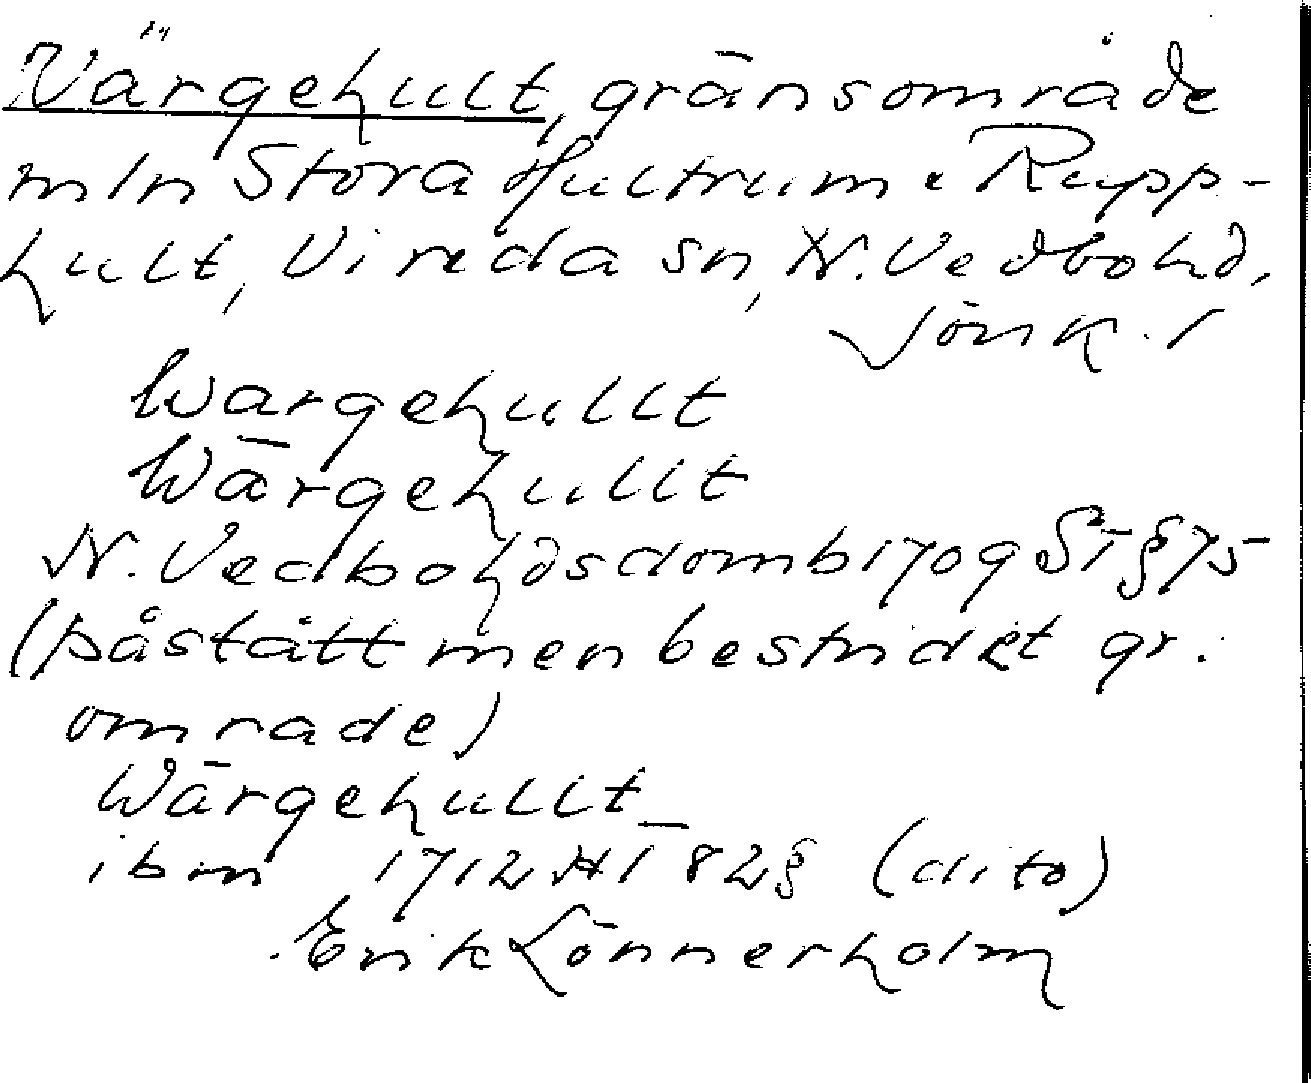 Värgehult, gränsområde
mln Stora Hultrum o Rupp-
hult, Vireda sn, N. Vedbo hd,
Jönk. l
Wargehullt
Wärgehullt
N. Vedbo hdsdomb 1709 ST § 75
(påstått men bestridet gr.
område)
Wärgehullt
ibm 1712 HT 82 § (dito)
Erik Lönnerholm